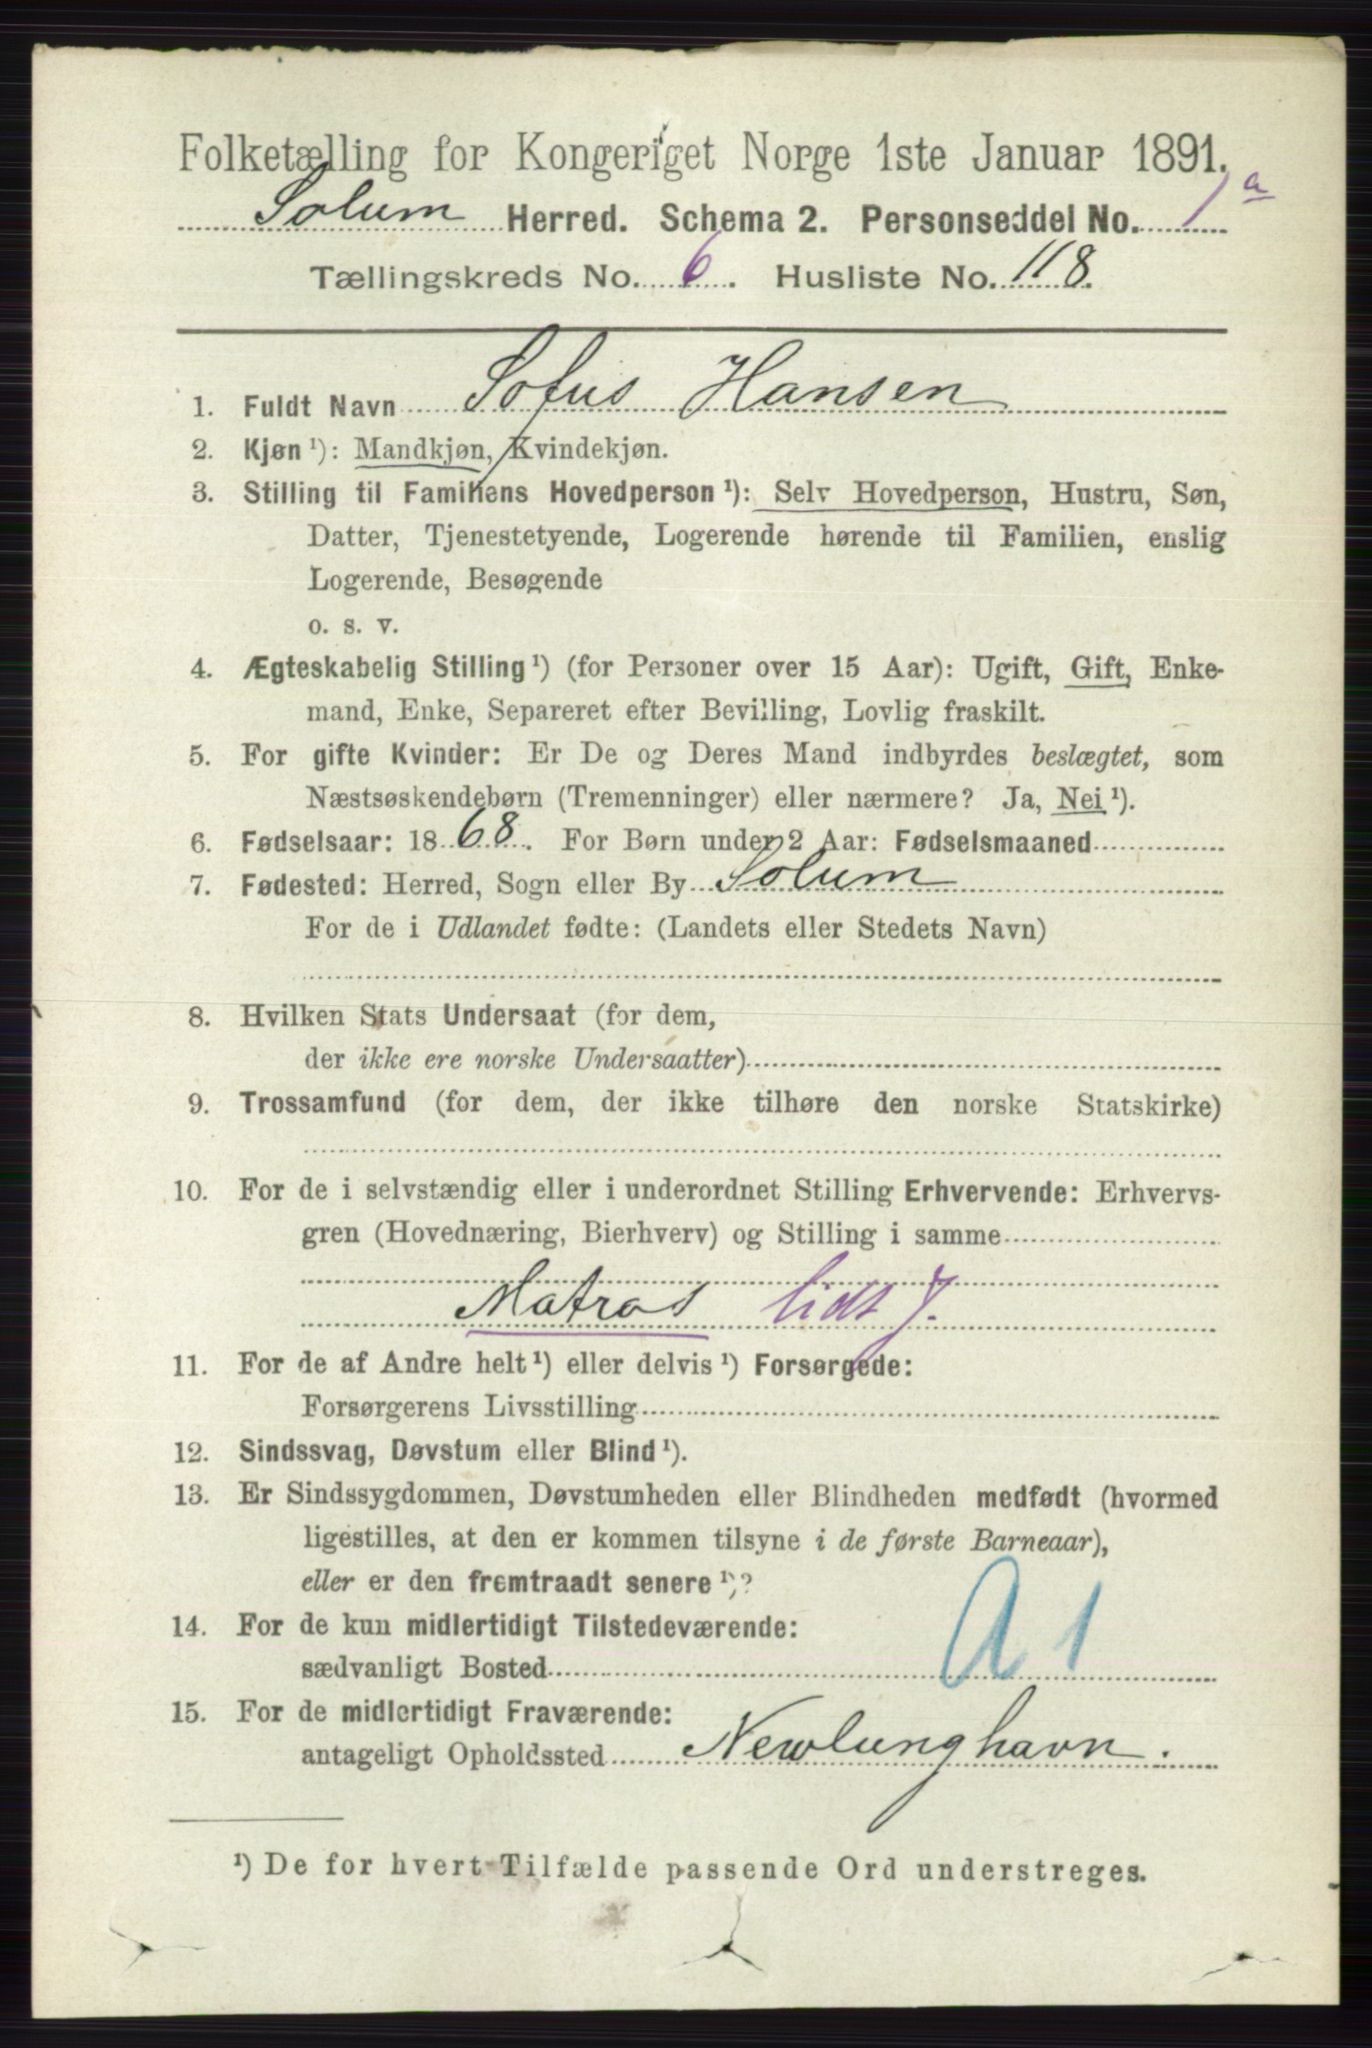 Folketælling for Kongeriget Norge 1ste Januar 1891.
Solum Herred. Schema 2. Personseddel No. 1 a
Tællingskreds No. 6. Husliste No. 118.
1. Fuldt Navn Sofus Hansen
2. Kjøn ¹): Mandkjøn, Kvindekjøn.
3. Stilling til Familiens Hovedperson ¹): Selv Hovedperson, Hustru, Søn,
Datter, Tjenestetyende, Logerende hørende til Familien, enslig
Logerende, Besøgende
o. s. v.
4. Ægteskabelig Stilling ¹) (for Personer over 15 Aar): Ugift, Gift, Enke-
mand, Enke, Separeret efter Bevilling, Lovlig fraskilt.
5. For gifte Kvinder: Er De og Deres Mand indbyrdes beslægtet, som
Næstsøskendebørn (Tremenninger) eller nærmere? Ja, Nei ¹).
6. Fødselsaar: 1868. For Børn under 2 Aar: Fødselsmaaned
7. Fødested: Herred, Sogn eller By Solum
For de i Udlandet fødte: (Landets eller Stedets Navn)
8. Hvilken Stats Undersaat (for dem,
der ikke ere norske Undersaatter)
9. Trossamfund (for dem, der ikke tilhøre den norske Statskirke)
10. For de i selvstændig eller i underordnet Stilling Erhvervende: Erhvervs-
gren (Hovednæring, Bierhverv) og Stilling i samme
Matros
11. For de af Andre helt ¹) eller delvis ¹) Forsørgede:
Forsørgerens Livsstilling
12. Sindssvag, Døvstum eller Blind ¹).
13. Er Sindssygdommen, Døvstumheden eller Blindheden medfødt (hvormed
ligestilles, at den er kommen tilsyne i de første Barneaar),
eller er den fremtraadt senere ¹)?
14. For de kun midlertidigt Tilstedeværende:
sædvanligt Bosted
15. For de midlertidigt Fraværende:
antageligt Opholdssted Newlunghavn.
¹) De for hvert Tilfælde passende Ord understreges.